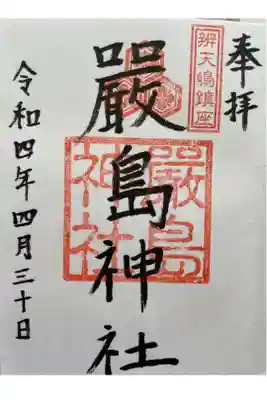 奉拝
辨天嶋鎮座
嚴島神社
嚴島神社
令和四年四月三十日